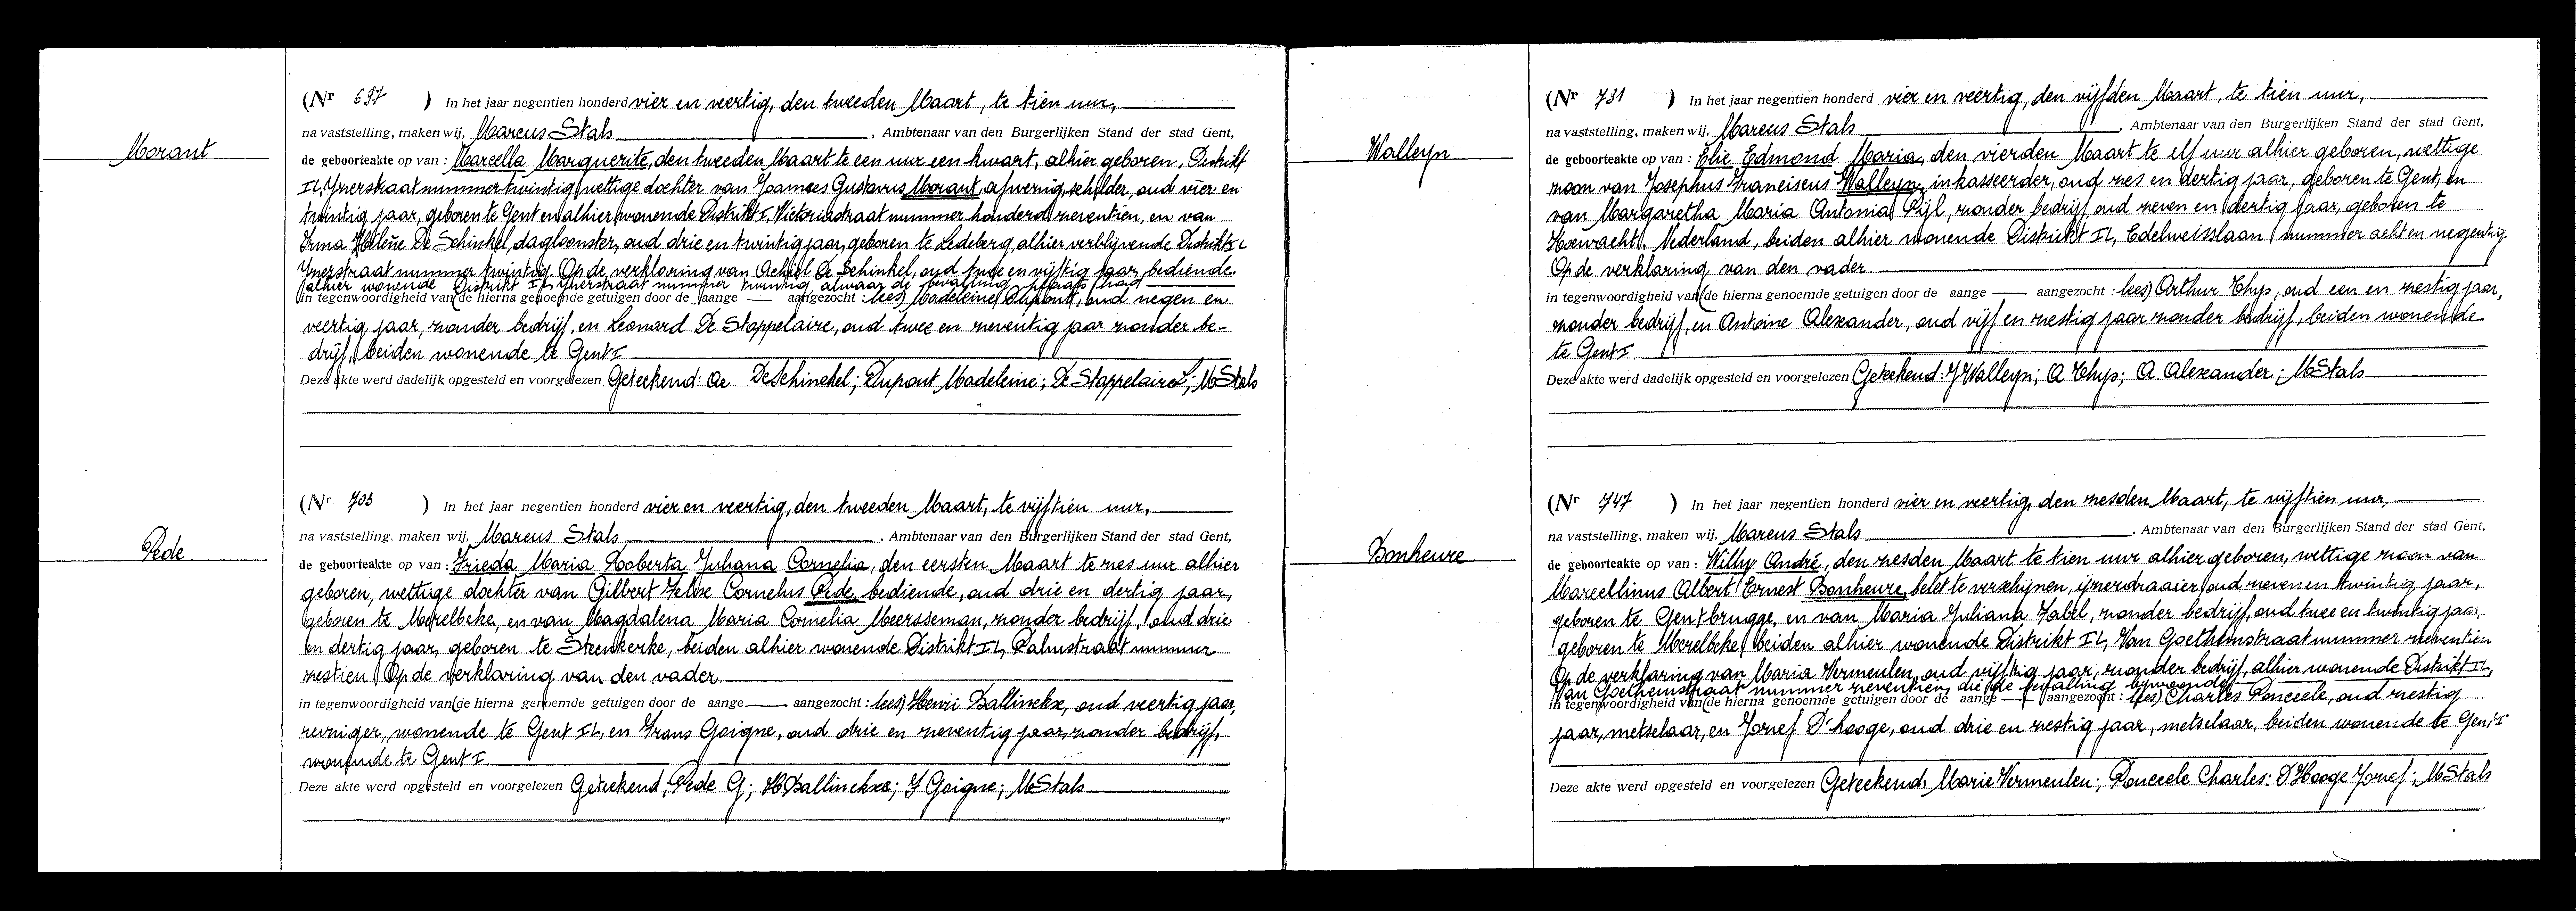 Morant
(Nr 697 ) In het jaar negentien honderd vier en veertig, den tweeden Maart, te tien uur,
na vaststelling, maken wij, Marcus Stals, Ambtenaar van den Burgerlijken Stand der stad Gent,
de geboorteakte op van : Marcella Marguerite, den tweeden Maart te een uur een kwart, alhier geboren, Distrikt
II, Yzerstraat nummer twintig, wettige dochter van Joannes Gustavus Morant, afwezig, schilder, oud vier en
twintig jaar, geboren te Gent en alhier wonende Distrikt I, Victoriastraat nummer honderd zeventien, en van
Irma Helène De Schinkel, dagloonster, oud drie en twintig jaar, geboren te Ledeberg, alhier verblijvende Distrikt IL
Yzerstraat nummer twintig. Op de verklaring van Achiel De Schinkel, oud twee en vijftig jaar, bediende
alhier wonende Distrikt II, Yzerstraat nummer twintig alwaar de bevalling plaats had
in tegenwoordigheid van (de hierna genoemde getuigen door de aange — aangezocht : lees) Madeleine Dupont, oud negen en
veertig jaar, zonder bedrijf, en Leonard De Stappelaire, oud twee en zeventig jaar zonder be-
drijf, beiden wonende te Gent I
Deze akte werd dadelijk opgesteld en voorgelezen Geteekend: Ac DeSchinckel; Dupont Madeleine; De Stappelaire L; M Stals
Pede
(Nr 703 ) In het jaar negentien honderd vier en veertig, den tweeden Maart, te vijftien uur,
na vaststelling, maken wij, Marcus Stals, Ambtenaar van den Burgerlijken Stand der stad Gent,
de geboorteakte op van : Frieda Maria Roberta Juliana Cornelia, den eersten Maart te zes uur alhier
geboren, wettige dochter van Gilbert Felix Cornelus Pede, bediende, oud drie en dertig jaar,
geboren te Merelbeke, en van Magdalena Maria Cornelia Meersseman, zonder bedrijf, oud drie
en dertig jaar, geboren te Steenkerke, beiden alhier wonende Distrikt II, Palmstraat nummer
zestien. Op de verklaring van den vader.
in tegenwoordigheid van (de hierna genoemde getuigen door de aange — aangezocht : lees) Henri Ballinckx, oud veertig jaar,
reiniger, wonende te Gent II, en Frans Goigne, oud drie en zeventig jaar, zonder bedrijf,
wonende te Gent I.
Deze akte werd opgesteld en voorgelezen Geteekend: Pede G; H Ballinckx; F Goigne; M Stals
Walleyn
(Nr 731 ) In het jaar negentien honderd vier en veertig, den vijfden Maart, te tien uur,
na vaststelling, maken wij, Marcus Stals, Ambtenaar van den Burgerlijken Stand der stad Gent,
de geboorteakte op van : Elie Edmond Maria, den vierden Maart te elf uur alhier geboren, wettige
zoon van Josephus Franciscus Walleyn, inkasseerder, oud zes en dertig jaar, geboren te Gent, en
van Margaretha Maria Antonia Pijl, zonder bedrijf, oud zeven en dertig jaar, geboren te
Nederland, beiden alhier wonende Distrikt II, Edelweisslaan nummer acht en negentig
Op de verklaring van den vader.
in tegenwoordigheid van (de hierna genoemde getuigen door de aange — aangezocht : lees) Arthur Thys, oud een en zestig jaar,
zonder bedrijf, en Antoine Alexander, oud vijf en zestig jaar zonder bedrijf, beiden wonende
te Gent I.
Deze akte werd dadelijk opgesteld en voorgelezen Geteekend: J Walleyn; A Thys; A Alexander; M Stals
Bonheure
(Nr 747 ) In het jaar negentien honderd vier en veertig, den zesden Maart, te vijftien uur,
na vaststelling, maken wij, Marcus Stals, Ambtenaar van den Burgerlijken Stand der stad Gent,
de geboorteakte op van : Willy André, den zesden Maart te tien uur alhier geboren, wettige zoon van
Marcellinus Albert Ernest Bonheure, belet te verschijnen, ijzerdraaier, oud zeven en twintig jaar,
geboren te Gentbrugge, en van Maria Juliana Zabel, zonder bedrijf, oud twee en twintig jaar,
geboren te Merelbeke, beiden alhier wonende Distrikt II, Van Goethemstraat nummer zeventien
Op de verklaring van Maria Vermeulen, oud vijftig jaar, zonder bedrijf, alhier wonende Distrikt II,
Van Goethemstraat nummer zeventien, die de bevalling bijwoonde
in tegenwoordigheid van (de hierna genoemde getuigen door de aange — aangezocht : lees) Charles Poncele, oud zestig
jaar, metselaar, en Jozef D'hooge, oud drie en zestig jaar, metselaar, beiden wonende te Gent I
Deze akte werd opgesteld en voorgelezen Geteekend: Marie Vermeulen; Poncele Charles: D'Hooge Jozef; M Stals